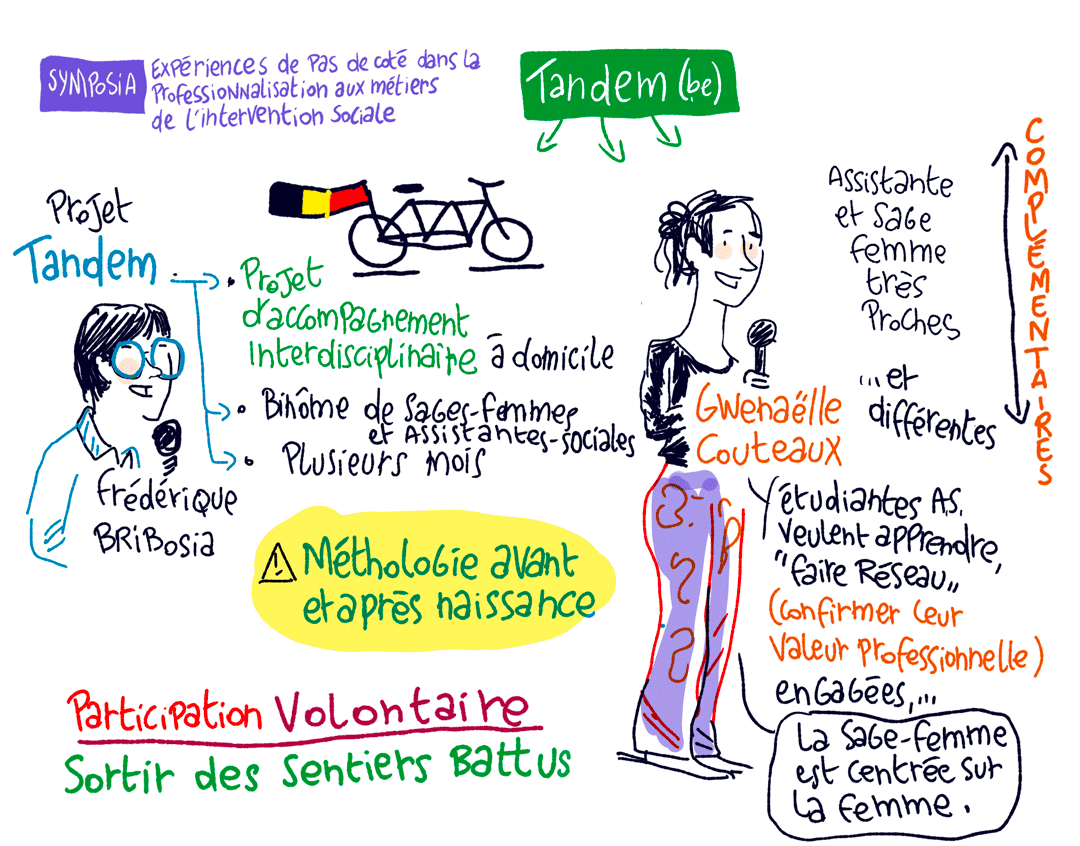 SYMPOSIA
Expériences de pas de coté dans la
Professionnalisation aux métiers
de l'intervention sociale
Tandem (be)
Projet
Tandem
• Projet
d'accompagnement
Interdisciplinaire à domicile
• Binôme de sages-femmes
et Assistantes-sociales
• Plusieurs mois
Frédérique
BRIBOSIA
⚠ Méthologie avant
et après naissance
Participation Volontaire
Sortir des sentiers Battus
Assistante
et sage
femme
très
proches
...et
différentes
COMPLÉMENTAIRES
Gwenaëlle
Couteaux
étudiantes A.S.
veulent apprendre,
"faire Réseau"
(confirmer leur
valeur professionnelle)
engagées,...
La sage-femme
est centrée sur
la femme.